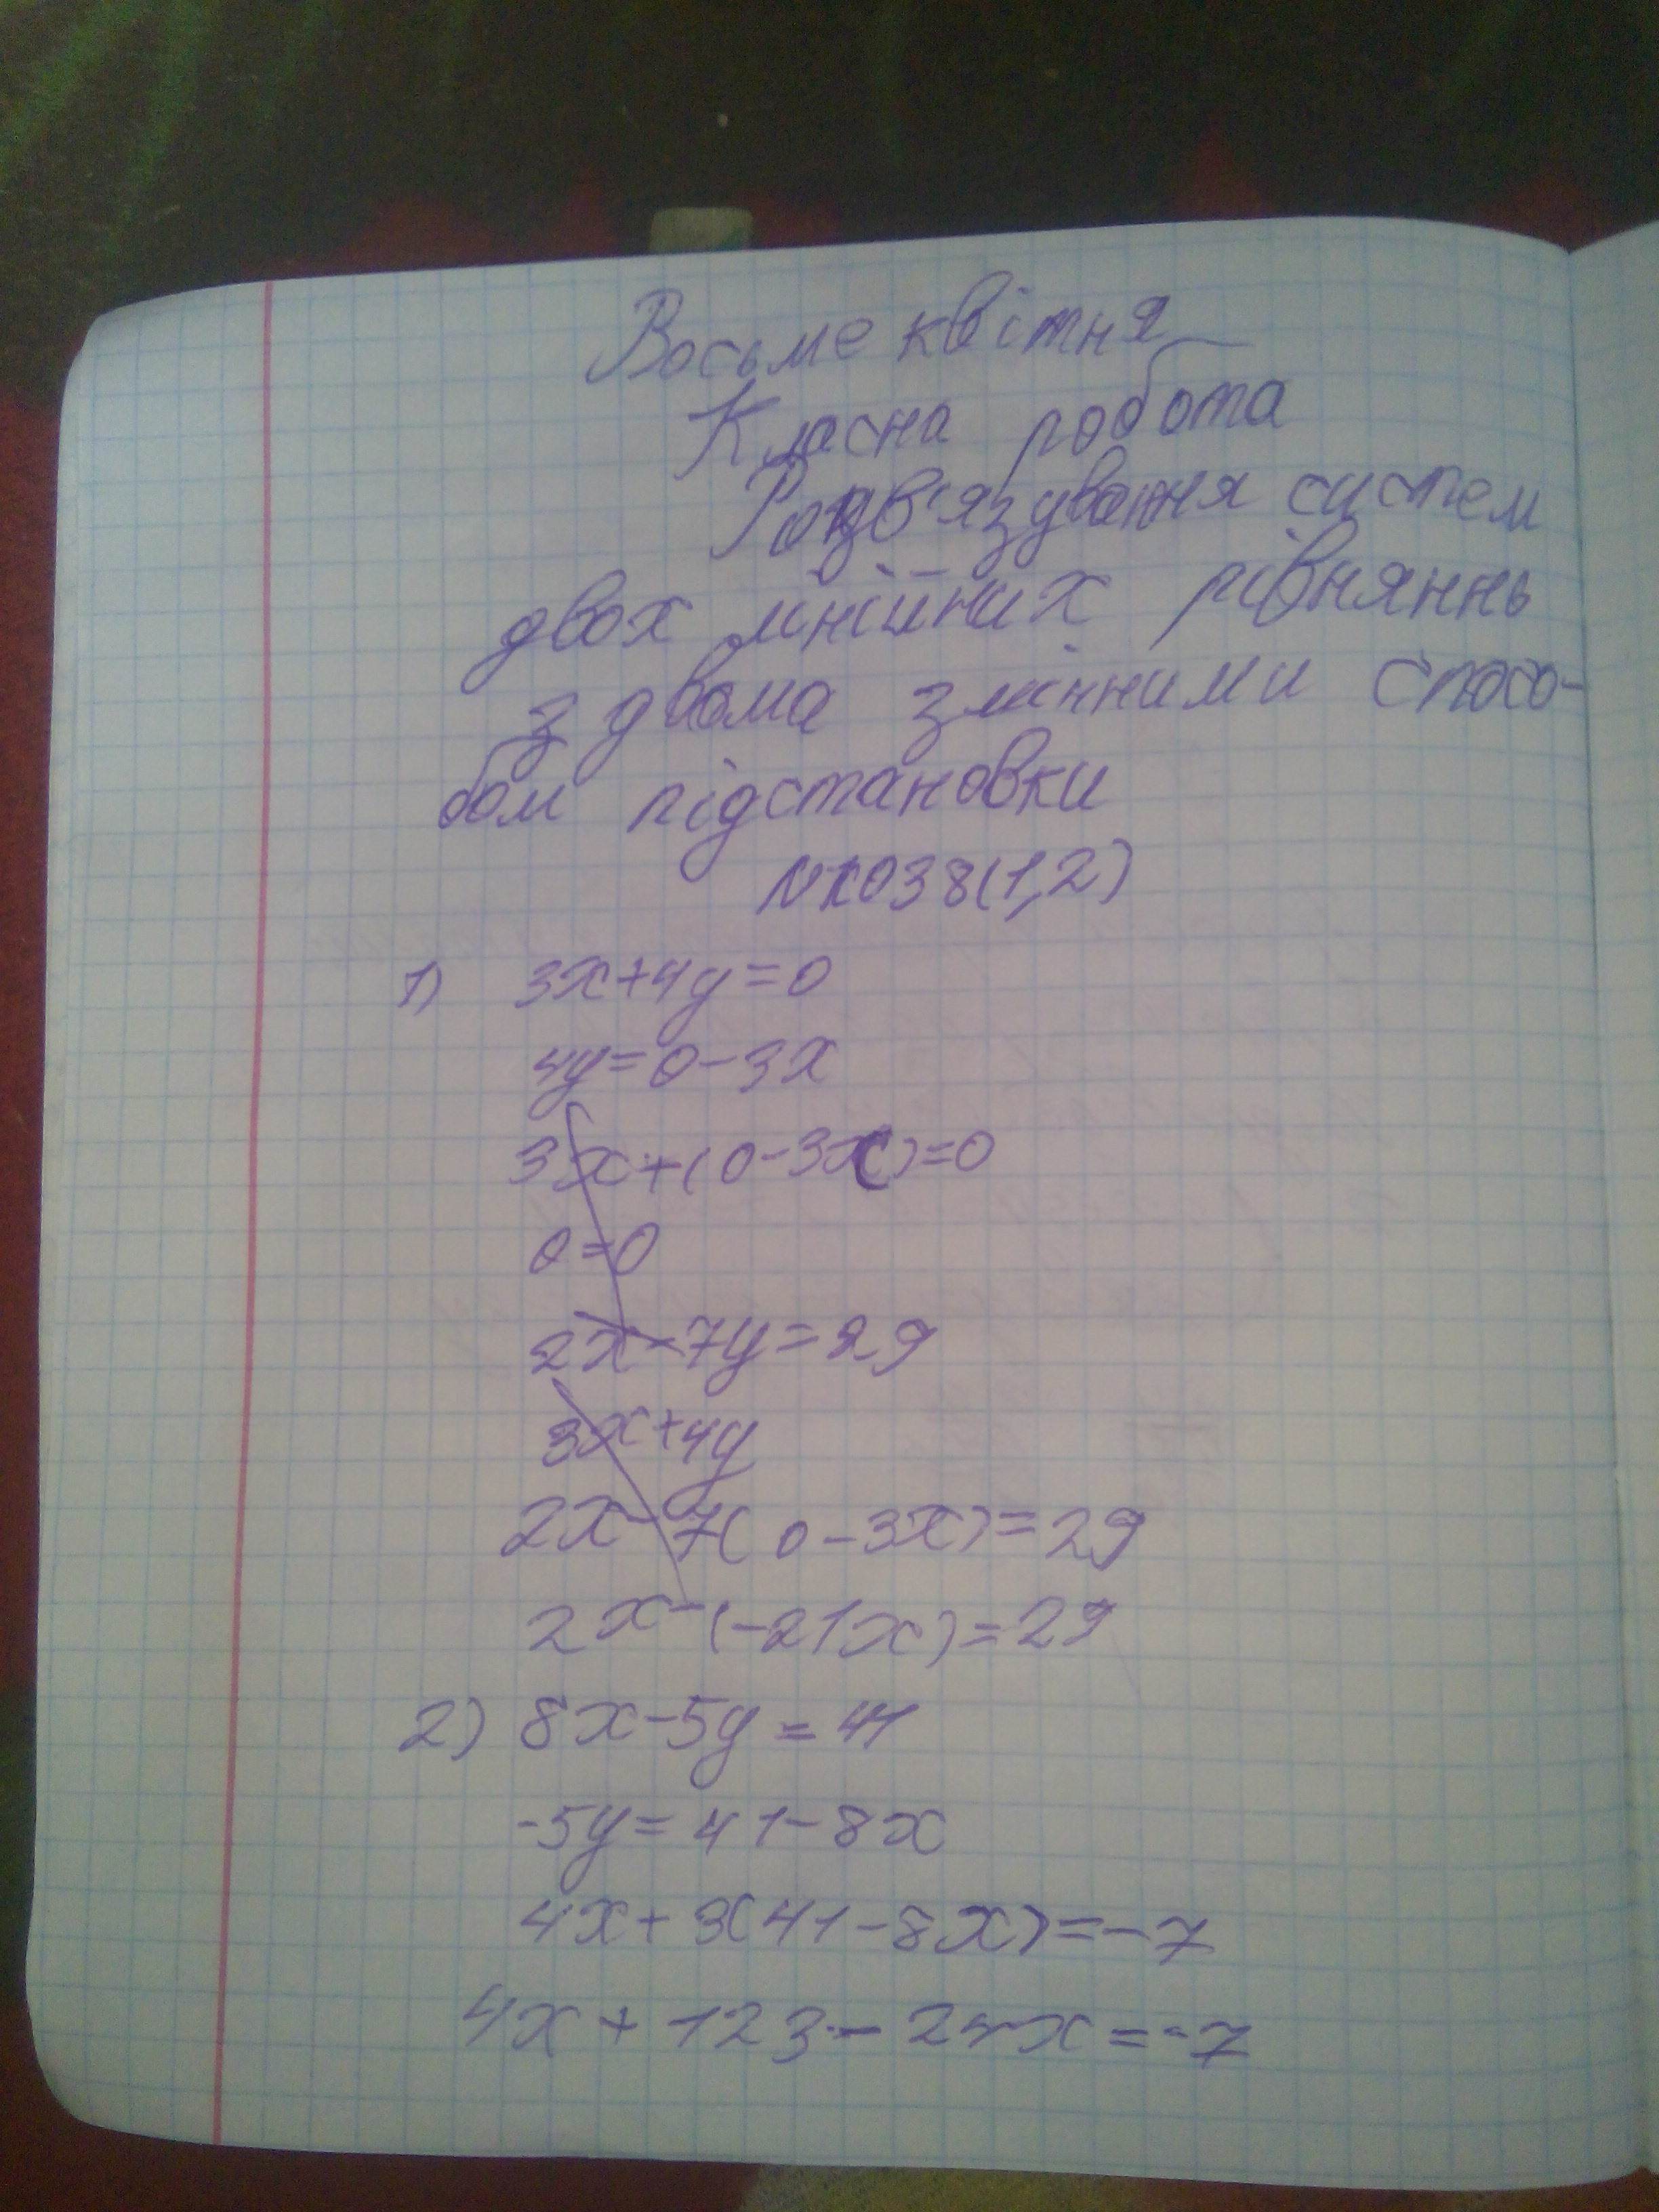 Восьме квітня
Класна робота
Розв'язування систем
двох лінійних рівняннь
з двома змінними спосо-
бом підстановки
№1038(1,2)
1) 3x+4y=0
4y=0-3x
3x+(0-3x)=0
0=0
2x-7y=29
3x+4y
2x-7(0-3x)=29
2x-(-21x)=29
2) 8x-5y=41
-5y=41-8x
4x+3(41-8x)=-7
4x+123-24x=-7